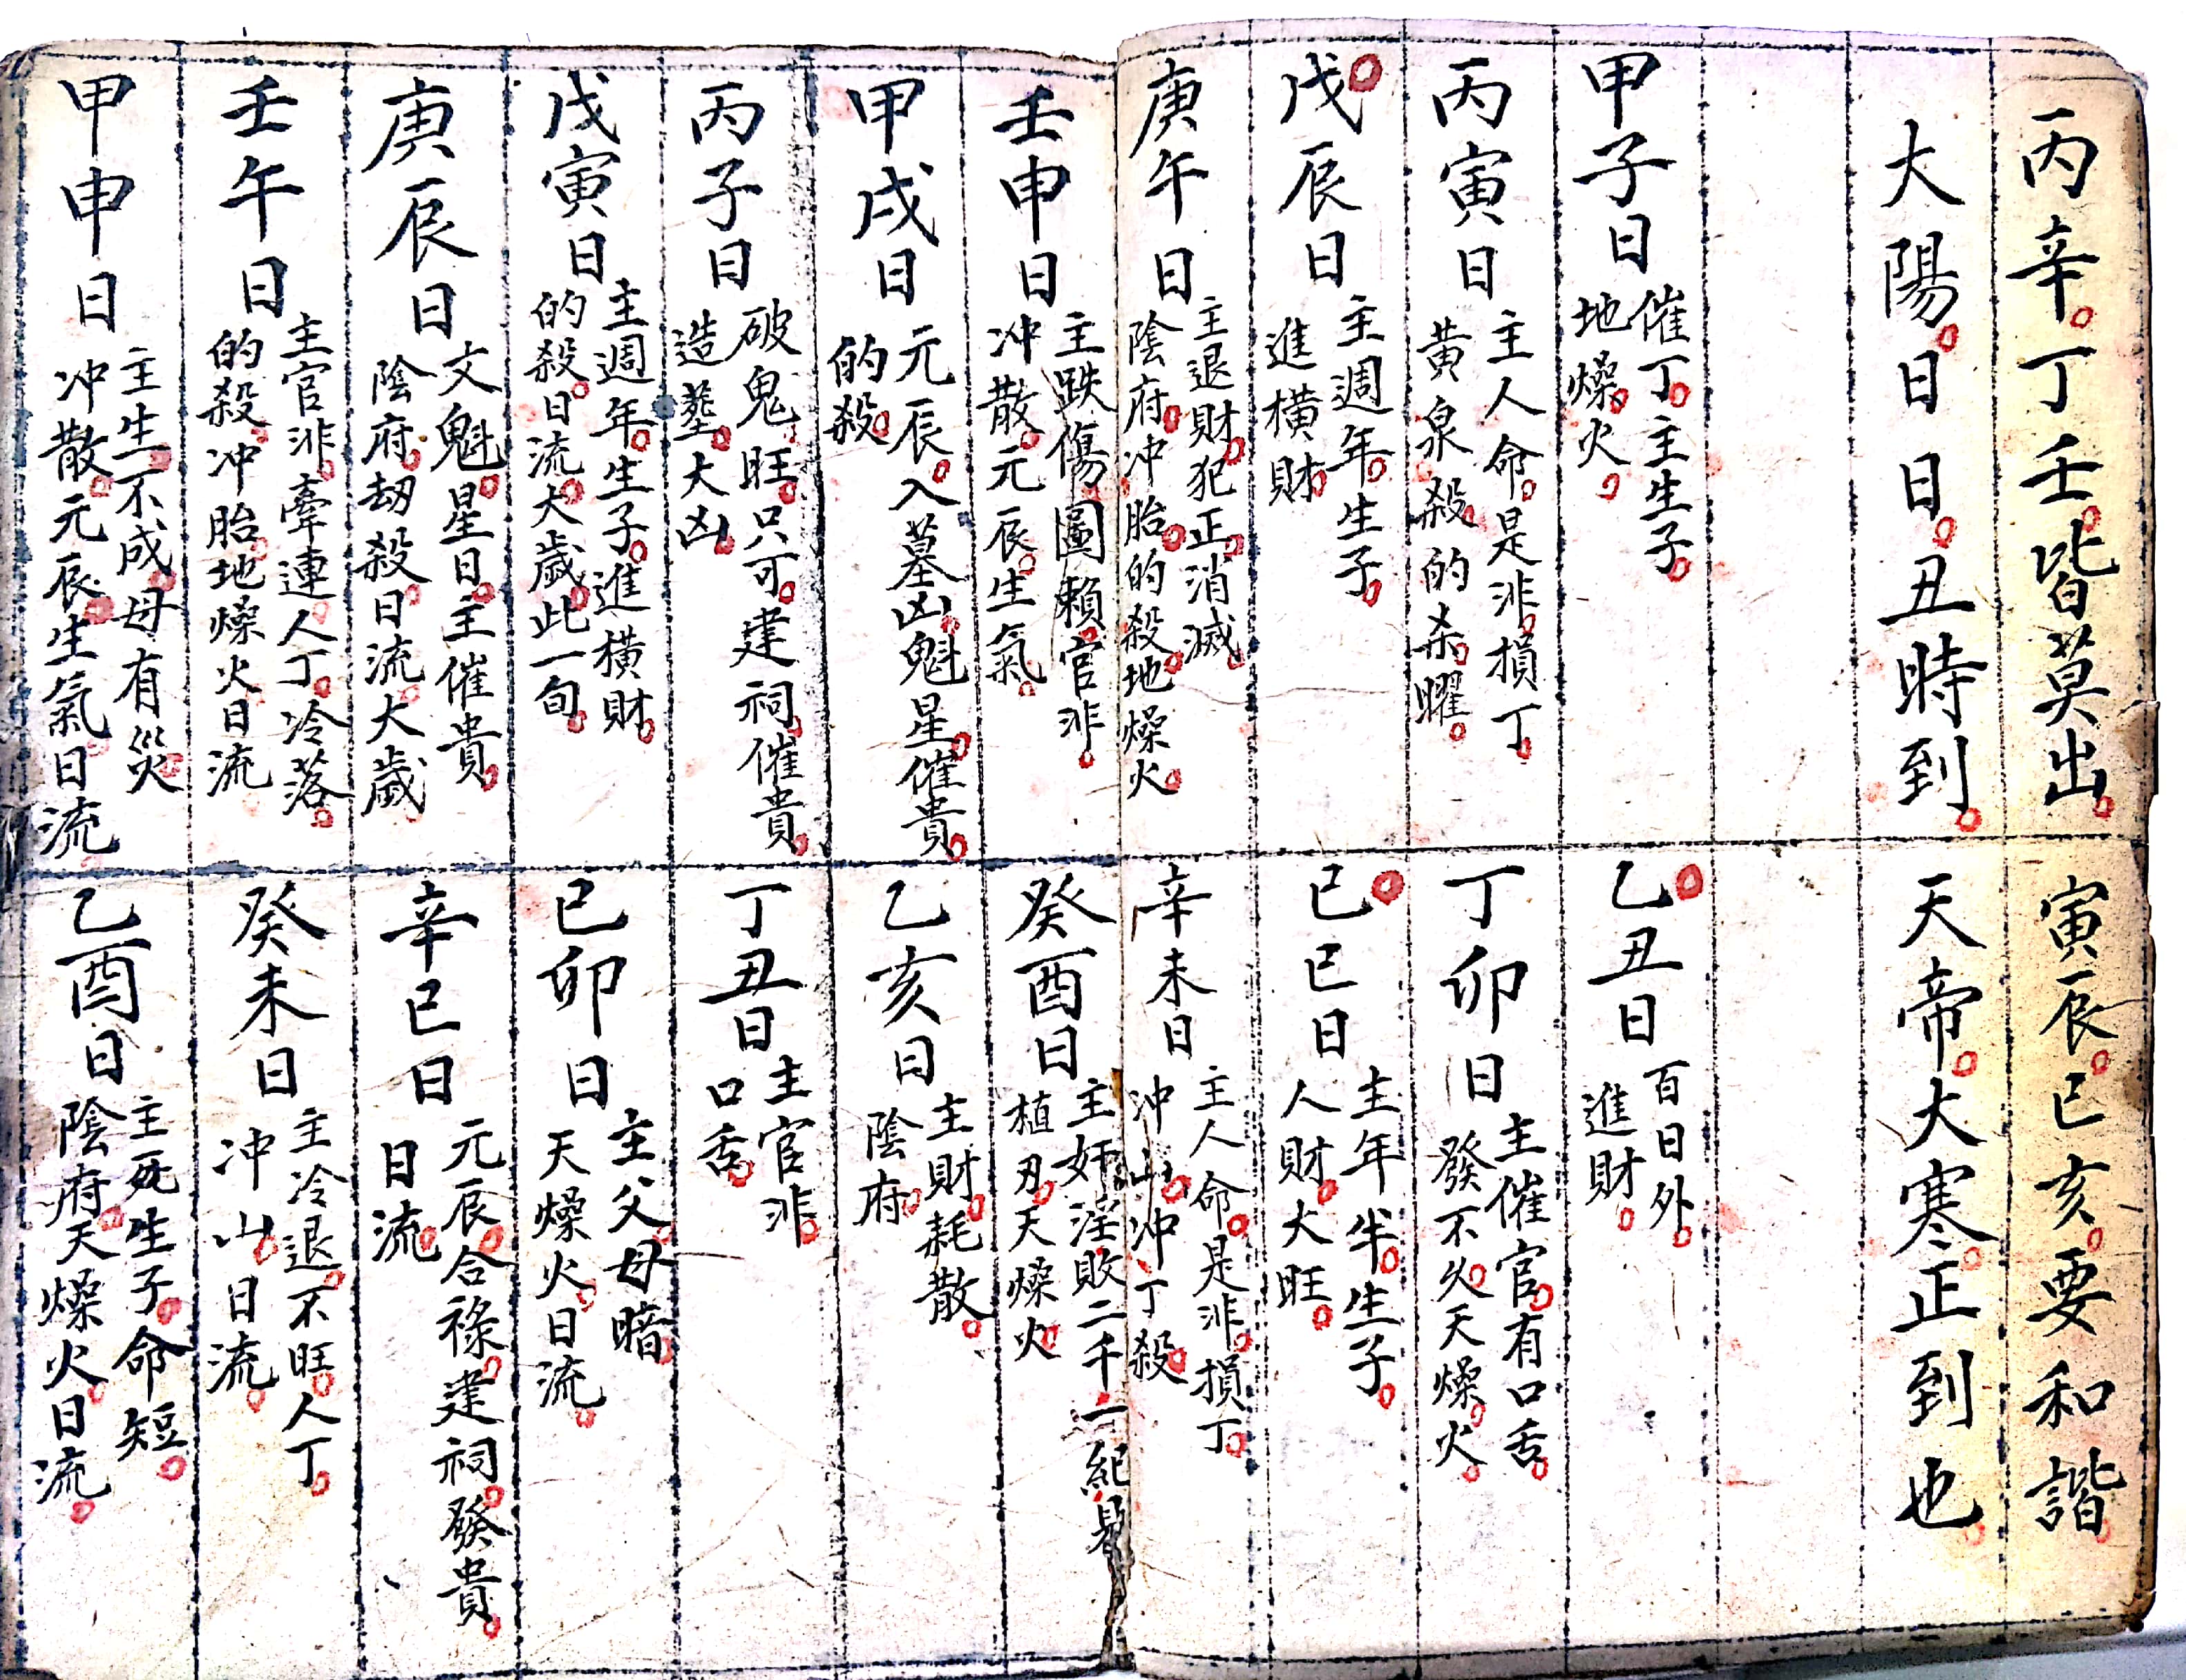 丙辛。丁壬。皆莫出。
寅辰。巳亥。要和諧。
大陽。日日。丑時到。
天帝。大寒。正到也。
甲子日
催丁。主生子。
地燥。火。
乙丑日
百日外。
進財。
丙寅日
主人命。是非。損丁。
黃泉殺。的杀。曜。
丁卯日
主催官。有口舌。
發不久。天燥。火。
戊辰日
主週年。生子。
進橫財。
己巳日
主年半。生子。
人財。大旺。
庚午日
主退財。犯正。消滅。
陰府。冲胎。的殺。地燥火。
辛未日
主人命。是非。損丁。
冲山。冲丁殺。
壬申日
主跌傷。圖賴。官非。
冲散。元辰。生氣。
癸酉日
主奸淫。敗二千。一紀
植刃。天燥火。
甲戌日
元辰。入墓凶。魁星。催貴。
的殺。
乙亥日
主財。耗散。
陰府。
丙子日
破鬼。旺。只可。建祠。催貴。
造塟。大凶。
丁丑日
主官非。
口舌。
戊寅日
主週年。生子。進橫財。
的殺。日流。大歲。此一旬。
己卯日
主父。母暗。
天燥火。日流。
庚辰日
文魁。星日。主催貴。
陰府。刼殺。日流。大歲
辛巳日
元辰。合祿。建祠。發貴。
日流。
壬午日
主官非。牽連。人丁。冷落。
的殺。冲胎。地燥火。日流
癸未日
主冷退。不旺。人丁。
冲山。日流。
甲申日
主生。不成。母有災。
冲散。元辰。生氣。日流
乙酉日
主死生子。命短。
陰府。天燥火。日流。